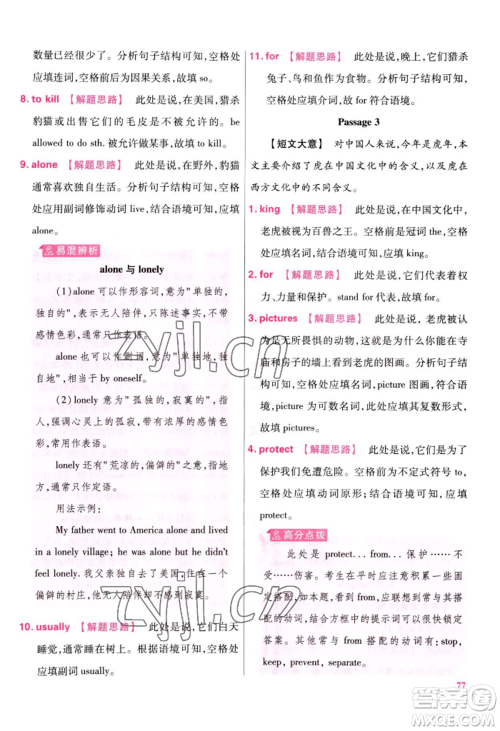 数量已经很少了。分析句子结构可知，空格处
应填连词，空格前后为因果关系，故填 so。
8. to kill 【解题思路】 此处是说，在美国，猎杀
豹猫或出售它们的毛皮是不被允许的。
be allowed to do sth. 被允许做某事。
9. alone 【解题思路】 此处是说，在野外，豹猫
通常喜欢独自生活。分析句子结构可知，空格
处应用副词修饰动词 live，结合语境可知，应填
alone。
易混辨析
alone 与 lonely
(1) alone 可以作形容词，意为“单独的，
独自的”，指无人陪伴，只陈述事实，不带有
感情色彩，通常只作表语。
alone 也可以作副词，意为“单独地，独自地”，相当于 by oneself。
(2) lonely 意为“孤独的，寂寞的”，
强调心灵上的孤寂，带有浓厚的感情色彩，
可作定语或表语。
lonely 还有“荒凉的，偏僻的”之意，此
时通常只作定语。
用法示例：
My father went to America alone and lived
in a lonely village; he was alone but he didn't
feel lonely. 我父亲独自去了美国，住在一个
偏僻的村庄，他无人陪伴但不感到寂寞。
10. usually 【解题思路】 此处是说，它们白天
睡觉，通常睡在树上。分析句子结构可知，空
格处应填副词 usually。
11. for 【解题思路】 此处是说，晚上，它们猎杀
兔子、鸟和鱼作为食物。分析句子结构可知，
空格处应填介词，故 for 符合语境。
Passage 3
【短文大意】 对中国人来说，今年是虎年，本
文主要介绍了虎在中国文化中的含义，以及虎在
西方文化中的含义。
1. king 【解题思路】 此处是说，在中国文化中，
老虎被视为百兽之王。空格前是冠词 the，空格
处应填名词，结合语境可知，应填 king。
2. for 【解题思路】 此处是说，它们代表着权
力、力量和保护。stand for 代表，故填 for。
3. pictures 【解题思路】 此处是说，老虎被认
为是无所畏惧的动物，这就是为什么你能在寺
庙和房子的墙上看到老虎的图画。分析句子结
构可知，空格处应填名词，picture 图画，符合语
境，由于 picture 为可数名词，故应填其复数形
式，故填 pictures。
4. protect 【解题思路】 此处是说，老虎能保
护我们免遭危险。空格前为不定式符号 to，
空格处应填动词原形；结合语境可知，应填
protect。
高分点拨
此处是 protect... from...保护……不
受……伤害。考生在平时应注意积累与介词
from 的固定搭配，应根据上下文的语境锁定
答案，类似的搭配的动词还有：stop，
keep，prevent，separate。
77
zyjl.cn
zyjl.cn
答案圈
MXQE.COM